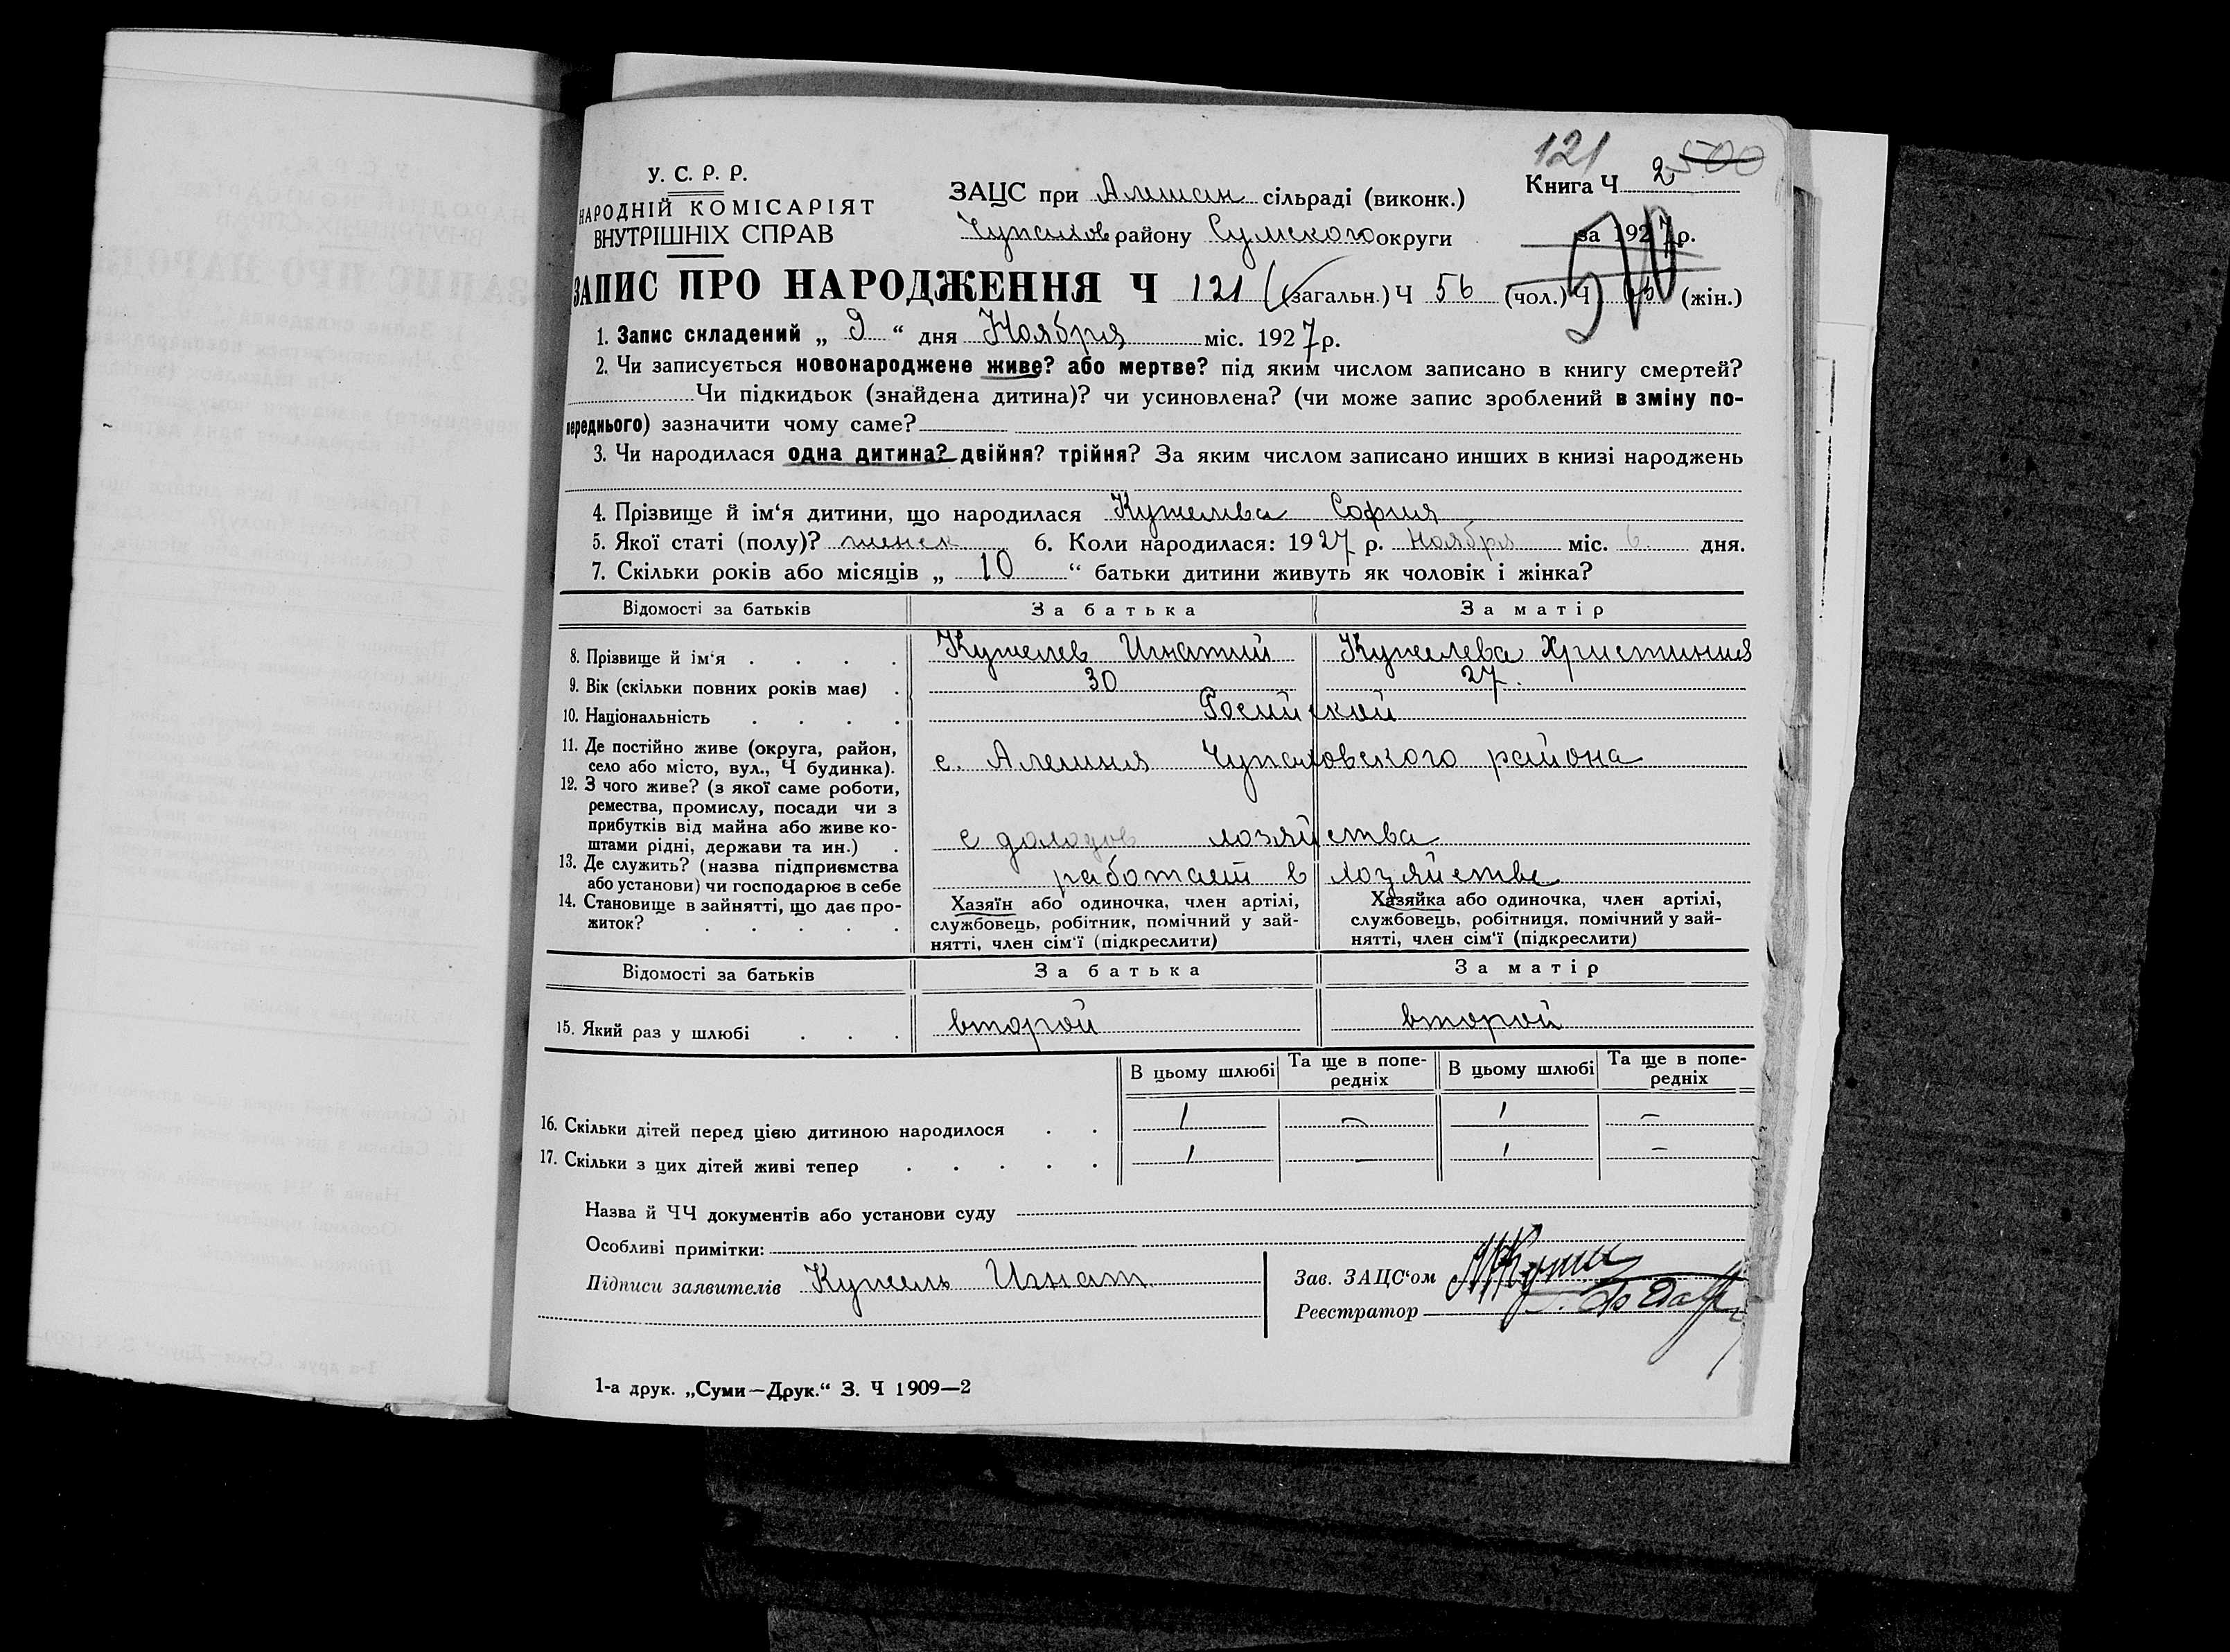 121 2 500
У. С. Р. Р.
НАРОДНІЙ КОМІСАРІЯТ
ВНУТРІШНІХ СПРАВ
ЗАЦС при Алешан сільраді (виконк.)
Чупахов району Сумского округи
Книга Ч 2
за 1927 р.
510
ЗАПИС ПРО НАРОДЖЕННЯ Ч 121 (загальн.) Ч 56 (чол.) Ч (жін.)
1. Запис складений „ 9 “ дня Ноября міс. 1927 р.
2. Чи записується новонароджене живе? або мертве? під яким числом записано в книгу смертей?
Чи підкидьок (знайдена дитина)? чи усиновлена? (чи може запис зроблений в зміну по-
переднього) зазначити чому саме?
3. Чи народилася одна дитина? двійня? трійня? За яким числом записано инших в книзі народжень
4. Прізвище й ім‘я дитини, що народилася Кужелва София
5. Якої статі (полу)? женск 6. Коли народилася: 1927 р. Ноября міс. 6 дня.
7. Скільки років або місяців „ 10 “ батьки дитини живуть як чоловік і жінка?
Відомості за батьків За батька За матір
8. Прізвище й ім‘я . . . . Кужелев Игнатий Кужелева Христиния
9. Вік (скільки повних років має) . 30 27.
10. Національність . . . . Росийской
11. Де постійно живе (округа, район,
село або місто, вул., Ч будинка). с. Алешня Чупаховского района
12. З чого живе? (з якої саме роботи,
ремества, промислу, посади чи з
прибутків від майна або живе ко-
штами рідні, держави та ин.) . с доходов хозяйства
13. Де служить? (назва підприємства
або установи) чи господарює в себе работает в хозяйстве
14. Становище в зайнятті, що дає про-
житок? . . . . .
Хазяїн або одиночка, член артілі,
службовець, робітник, помічний у зай-
нятті, член сім‘ї (підкреслити)
Хазяйка або одиночка, член артілі,
службовець, робітниця, помічний у зай-
нятті, член сім‘ї (підкреслити)
Відомості за батьків За батька За матір
15. Який раз у шлюбі . . . второй второй
В цьому шлюбі Та ще в попе-
редніх В цьому шлюбі Та ще в попе-
редніх
16. Скільки дітей перед цією дитиною народилося . . 1 – 1 –
17. Скільки з цих дітей живі тепер . . . . . 1 – 1 –
Назва й ЧЧ документів або установи суду
Особливі примітки:
Підписи заявителів Кужель Игнат
Зав. ЗАЦС‘ом
Реєстратор
1-а друк. „Суми—Друк.“ З. Ч 1909—2